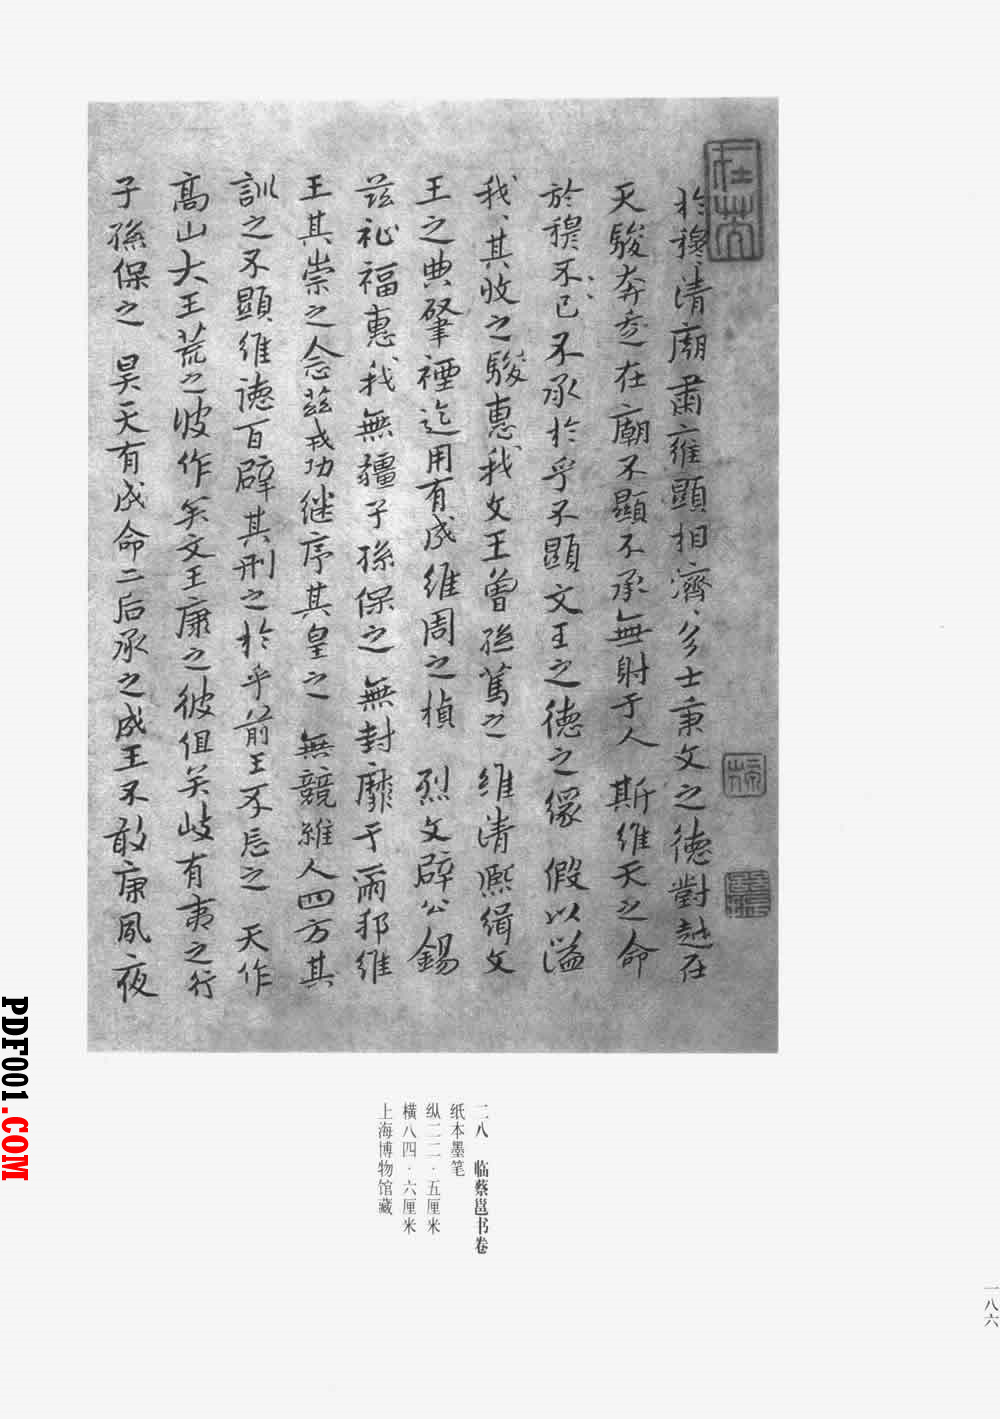 於穆〻清廟肅雝顯相濟〻多士秉文之德對越在
天駿奔走在廟不顯不承無射于人 斯維天之命
於穆不已〻〻不承於乎不顯文王之德之 假以溢
我〻其收之駿惠我文王曾孫篤之 維清熙緝文
王之典肇禋迄用有成維周之楨 烈文辟公錫
茲祉福惠我無疆子孫保之無封靡于爾邦維
王其崇之念茲戎功继序其皇之 無競維人四方其
訓之不顯維德百辟其刑之於乎前王不忘之 天作
高山大王荒之彼作矣文王康之彼徂矣岐有夷之行
子孫保之 昊天有成命二后承之成王不敢康夙夜
二八 临蔡邕书卷
纸本墨笔
纵二二·五厘米
横八四·六厘米
上海博物馆藏
一八六
PDF001.COM